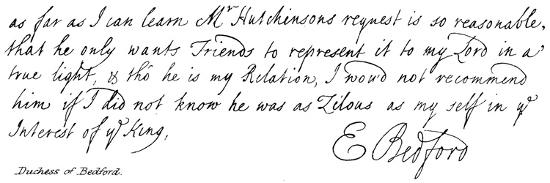 as far as I can learn Mr Hutchinsons request is so reasonable,
that he only wants Friends to represent it to my Lord in a
true light, & tho' he is my Relation, I wou'd not recommend
him if I did not know he was as Zilous as my self in ye
Interest of ye King,
E Bedford
Duchess of Bedford.